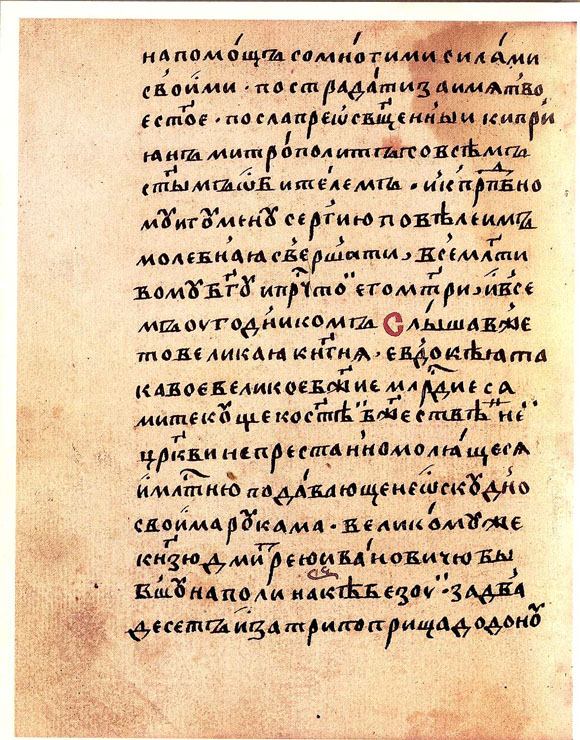 на помощъ со многими силами
своими · пострадати за имя тво
е стое · посла преѡсщенныи кипри
янъ митрополитъ со всѣмъ
стымъ ѡбителемъ · и к прпдбно
му игумену сергию повѣле имъ
молебная свершати, всемлти
вому бгу и прчтои его мтри, и все
мъ оугодникомъ Слышав же
то великая кнгня, евдокѣюта
каво е великое бжие млрдие са
ми текуще ко стѣи бжествѣннеи
цркви непрестанно молящеся
и млтню подавающе неѡскудно
своима рукама · великому же
кнзю дмитрею ивановичю бы
вшу на поли на кѣбезоу · за два
десетъ и за три поприща до дону